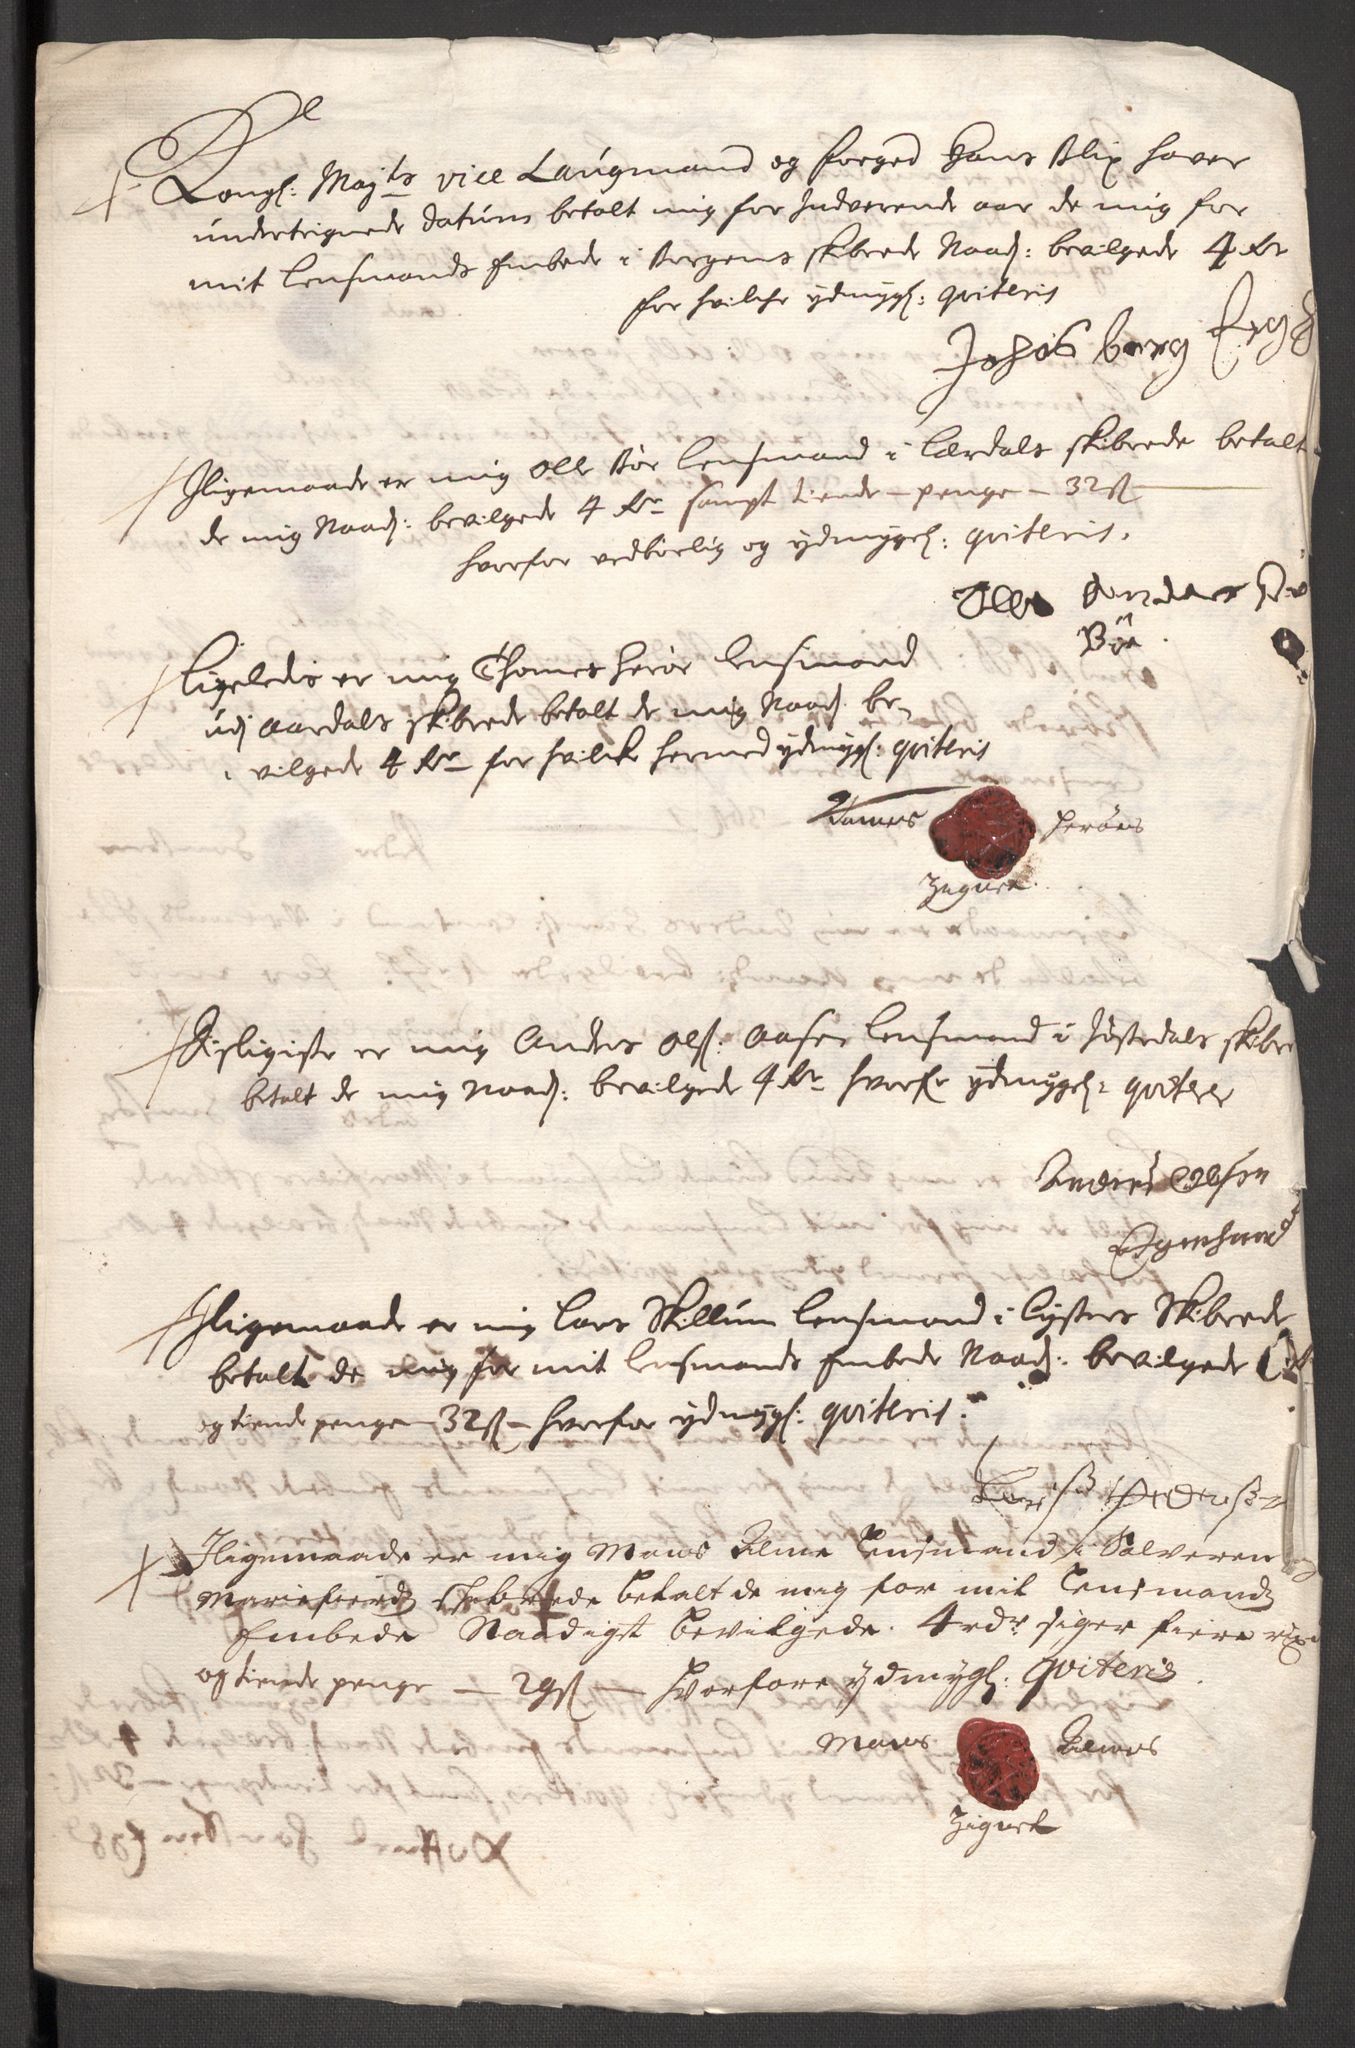 Kongl: Mayts vice Laugmand og foeged Hans Blix haver
undertegnede datum betalt mig for Indverende aar de mig for
mit Lensmands Embede i Borgens skibrede Naad: bevilgede 4 Rr
for hvilche ydmygl: qviteris
Johois berg
Iligemaade er mig Olle Bøe Lensmand i Lærdals skibrede betalt
de mig Naad: bevilgede 4 Rr sampt tiende-penge - 32 ß
hvorfor vedbørlig og ydmygel: qviteris.
Olle Andersen
Bøe
Ligeledis er mig Thomes Herøe Lensmand
udj Aardals skibrede betalt de mig Naad: be-
vilgede 4 Rr for hvilke hermed ydmygl: qviteris
Tomes Herøes
Zignet
Disligiste er mig Anders Olß: Aasen Lensmand i Jostedals skibre
betalt de mig Naad: bevilgede 4 Rr hvorfor ydmygel: qviterer
Anders Olsen
Egenhaand
Iligemaade er mig Lars Skillum Lensmand i Lysters Skibrede
betalt de mig for mit Lensmands Embede Naad: bevilgede
og tiende penge - 32 ß - hvorfor ydmygl: qviteris.
Larß Pederßen
Iligemaade er mig Mons Lensmand i Solveren
Mariefierds skibrede betalt de mig for mit Lensmands
Embede Naadigst bevilgede. 4 rdr siger fiere rix
og tiende penge - 29 ß - hvorfore ydmygl: qviteris
Mons
Zignet